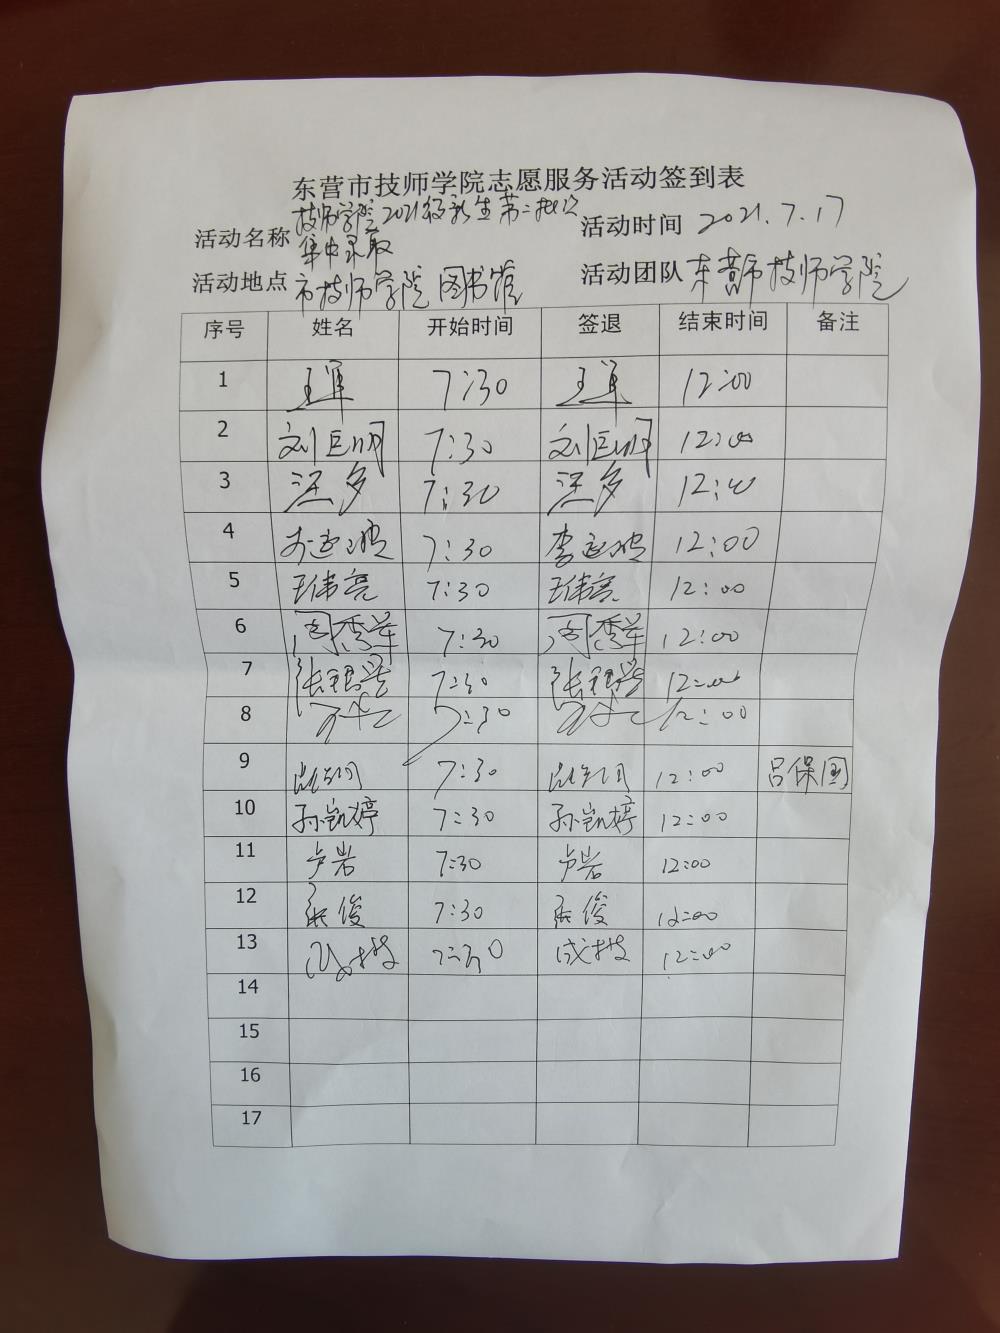 东营市技师学院志愿服务活动签到表
活动名称 技师学院2021级新生第二批次 活动时间 2021.7.17
集中录取
活动地点 市技师学院图书馆 活动团队 东营市技师学院
序号 姓名 开始时间 签退 结束时间 备注
1 王军 7:30 王军 12:00
2 刘巨明 7:30 刘巨明 12:00
3 汪多 7:30 汪多 12:00
4 7:30 12:00
5 王伟亮 7:30 王伟亮 12:00
6 周秀华 7:30 周秀华 12:00
7 7:30 12:00
8 7:30 12:00
9 7:30 12:00 吕保国
10 孙凯婷 7:30 孙凯婷 12:00
11 卢岩 7:30 卢岩 12:00
12 张俊 7:30 张俊 12:00
13 7:30 12:00
14
15
16
17